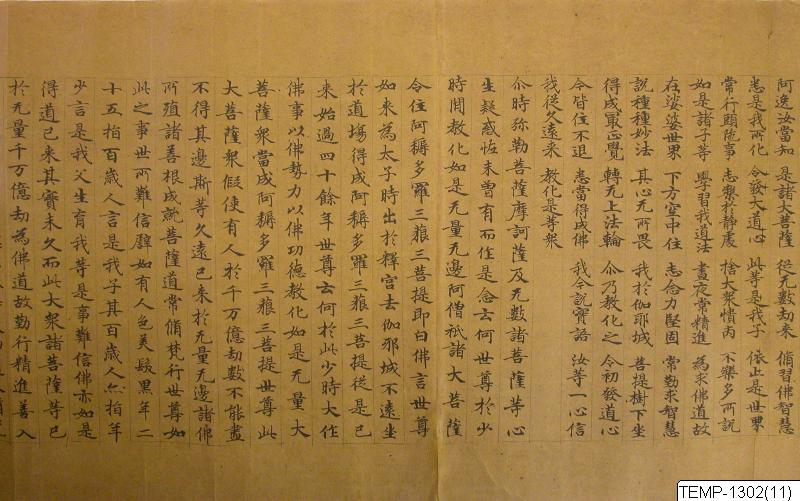 阿逸汝當知 是諸大菩薩 從无數劫来 脩習佛智慧
悉是我所化 令發大道心 此等是我子 依止是世界
常行頭陁事 志樂於靜處 捨大衆憒丙 不樂多所說
如是諸子等 學習我道法 晝夜常精進 為求佛道故
在娑婆世界 下方空中住 志念力堅固 常勤求智慧
說種種妙法 其心无所畏 我於伽耶城 菩提樹下坐
得成冣正覺 轉无上法輪 尒乃教化之 令初發道心
今皆住不退 悉當得成佛 我今說實語 汝等一心信
我從久遠来 教化是等衆
尒時弥勒菩薩摩訶薩及无數諸菩薩等心
生疑惑怪未曾有而作是念云何世尊於少
時間教化如是无量无邊阿僧祇諸大菩薩
令住阿耨多羅三藐三菩提即白佛言世尊
如来為太子時出於釋宮去伽耶城不遠坐
於道場得成阿耨多羅三藐三菩提從是已
来始過四十餘年世尊云何於此少時大作
佛事以佛勢力以佛功德教化如是无量大
菩薩衆當成阿耨多羅三藐三菩提世尊此
大菩薩衆假使有人於千万億劫數不能盡
不得其邊斯等久遠已来於无量无邊諸佛
所殖諸善根成就菩薩道常脩梵行世尊如
此之事世所難信譬如有人色美髮黑年二
十五指百歲人言是我子其百歲人亦指年
少言是我父生育我等是事難信佛亦如是
得道已来其實未久而此大衆諸菩薩等已
於无量千万億劫為佛道故勤行精進善入
TEMP-1302(11)